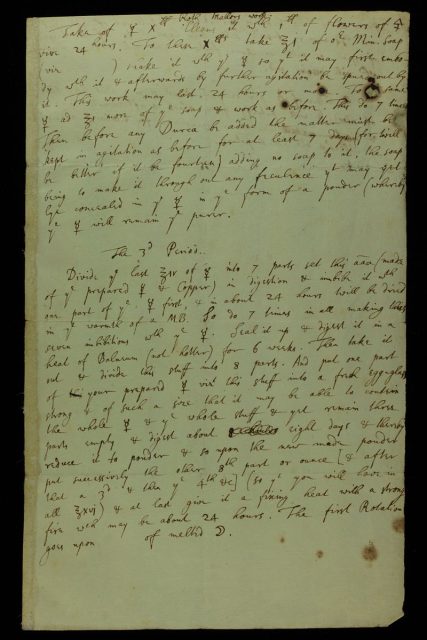 Take of ☿ X
℔ of flowers of
vive 24 hours. To these X ℔ take ℥1 of oe Min. Soap
(viz ) make it wth ye ☿ so yt it may first embo-
dy wth it & afterwards by further agitation be spued out by
it. This work may last 24 hours or more. To same
☿ ad ℥1 more of ye soap & work as before. This do 7 times
Then before any Ducca be added the matter must be
kept in agitation as before for at least 7 days (for will
be better if it be fourteen) adding no soap to it, the soap
being to make it through out any feculence yt may yet
lye concealed in ye ☿ in ye form of a pouder (whereby
ye ☿ will remain ye purer.
The 3d Period.
Divide ye last ℥xv of ☿ into 7 parts set this aaa (made
of ye prepared ☿ & Copper) in digestion & imbibe it wth
one part of ye ☿ first, & in about 24 hours will be dried
in ye warmth of a MB. So do 7 times in all making these
seven imbibitions wth ye ☿. Seal it up & digest it in a
heat of Balneum (not hotter) for 6 weeks. Then take it
out & divide this stuff into 8 parts. And put one part
of your prepared ☿ this stuff into a fresh eggglass
strong & of such a size that it may be able to contein
the whole ☿ & ye whole stuff & yet remain three
parts empty & digest about eight days & thereby
reduce it to pouder & so upon the new made pouder
put successively the other 8th part or ounce [& after
that a 3d & then ye 4th &c] (so ye you will have in
all ℥xvj) & at last give it a fixing heat with a strong
fire wch may be about 24 hours. The first Rotation
goes upon of melted ☽.